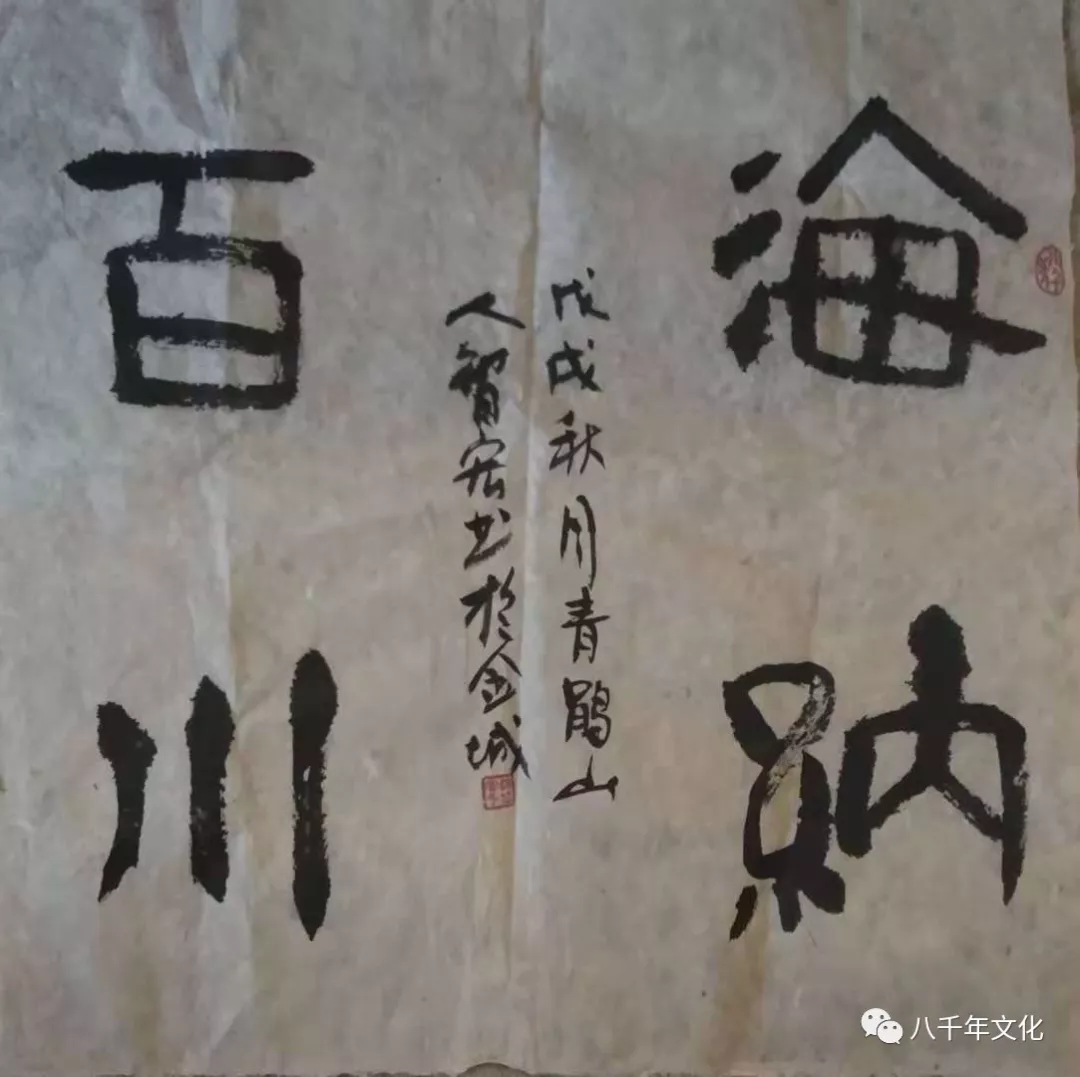 海納
百川
戊戌秋月青鹃山
人智宏书於金城
八千年文化